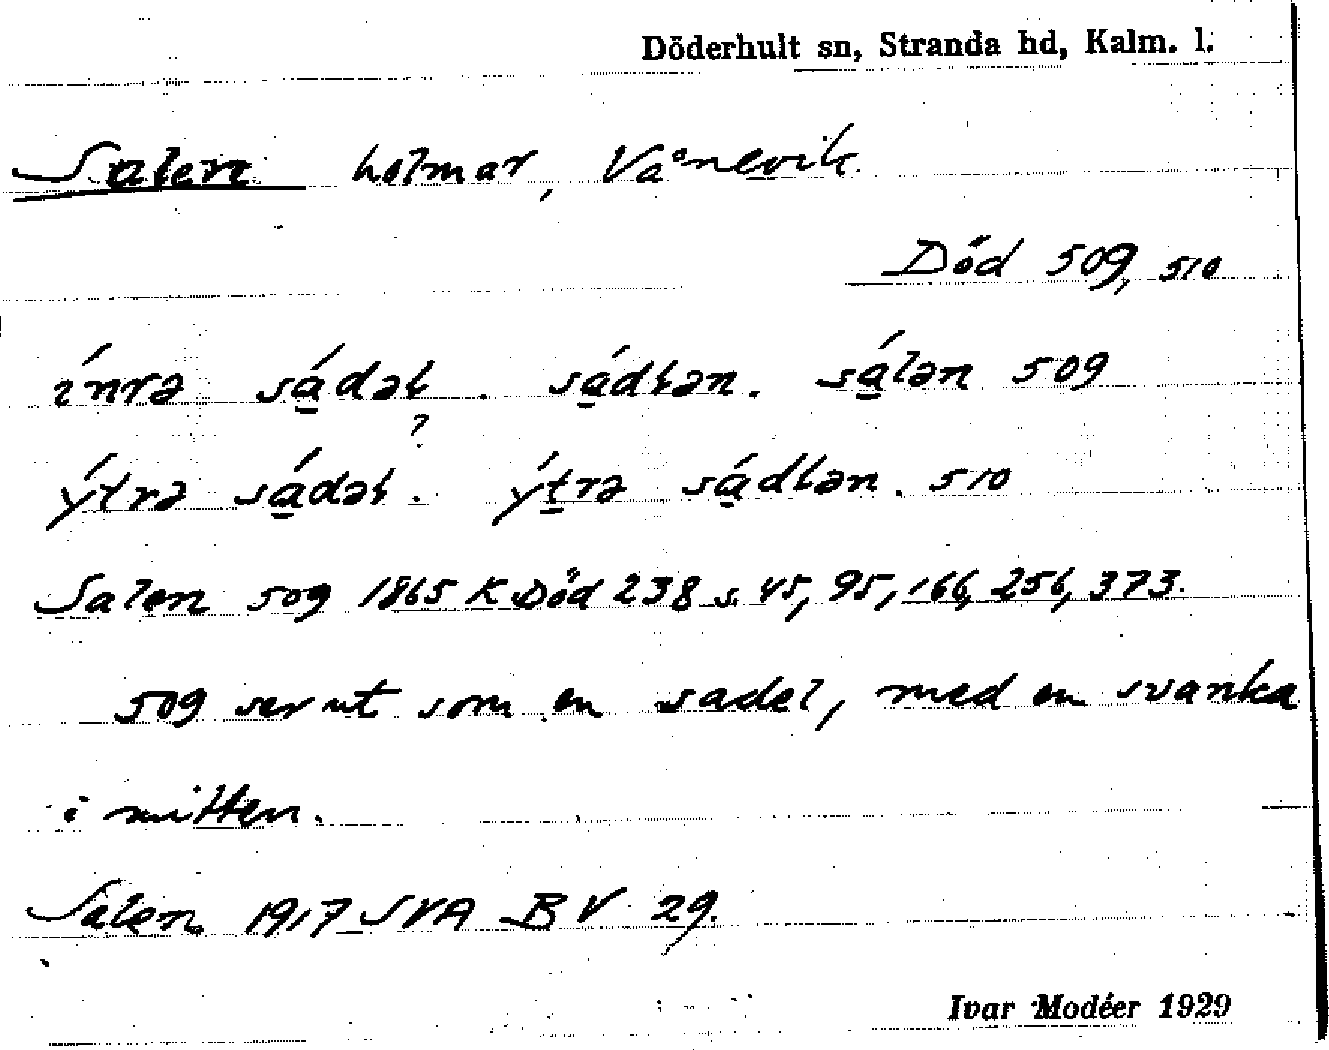 Döderhult sn, Stranda hd, Kalm. l.
Salen holmar, Vånevik.
Död 509, 510
ínrə sá̲dəł. sá̲dłən. sá̲lən 509
?
ýtrə sá̲dəł. ýt̲rə sá̲dłən. 510
Salen 509 1865 K Död 238 s. 45, 95, 166, 256, 373.
509 ser ut som en sadel, med en svanka
i mitten.
Salen 1917 SVA B V 29.
Ivar Modéer 1929